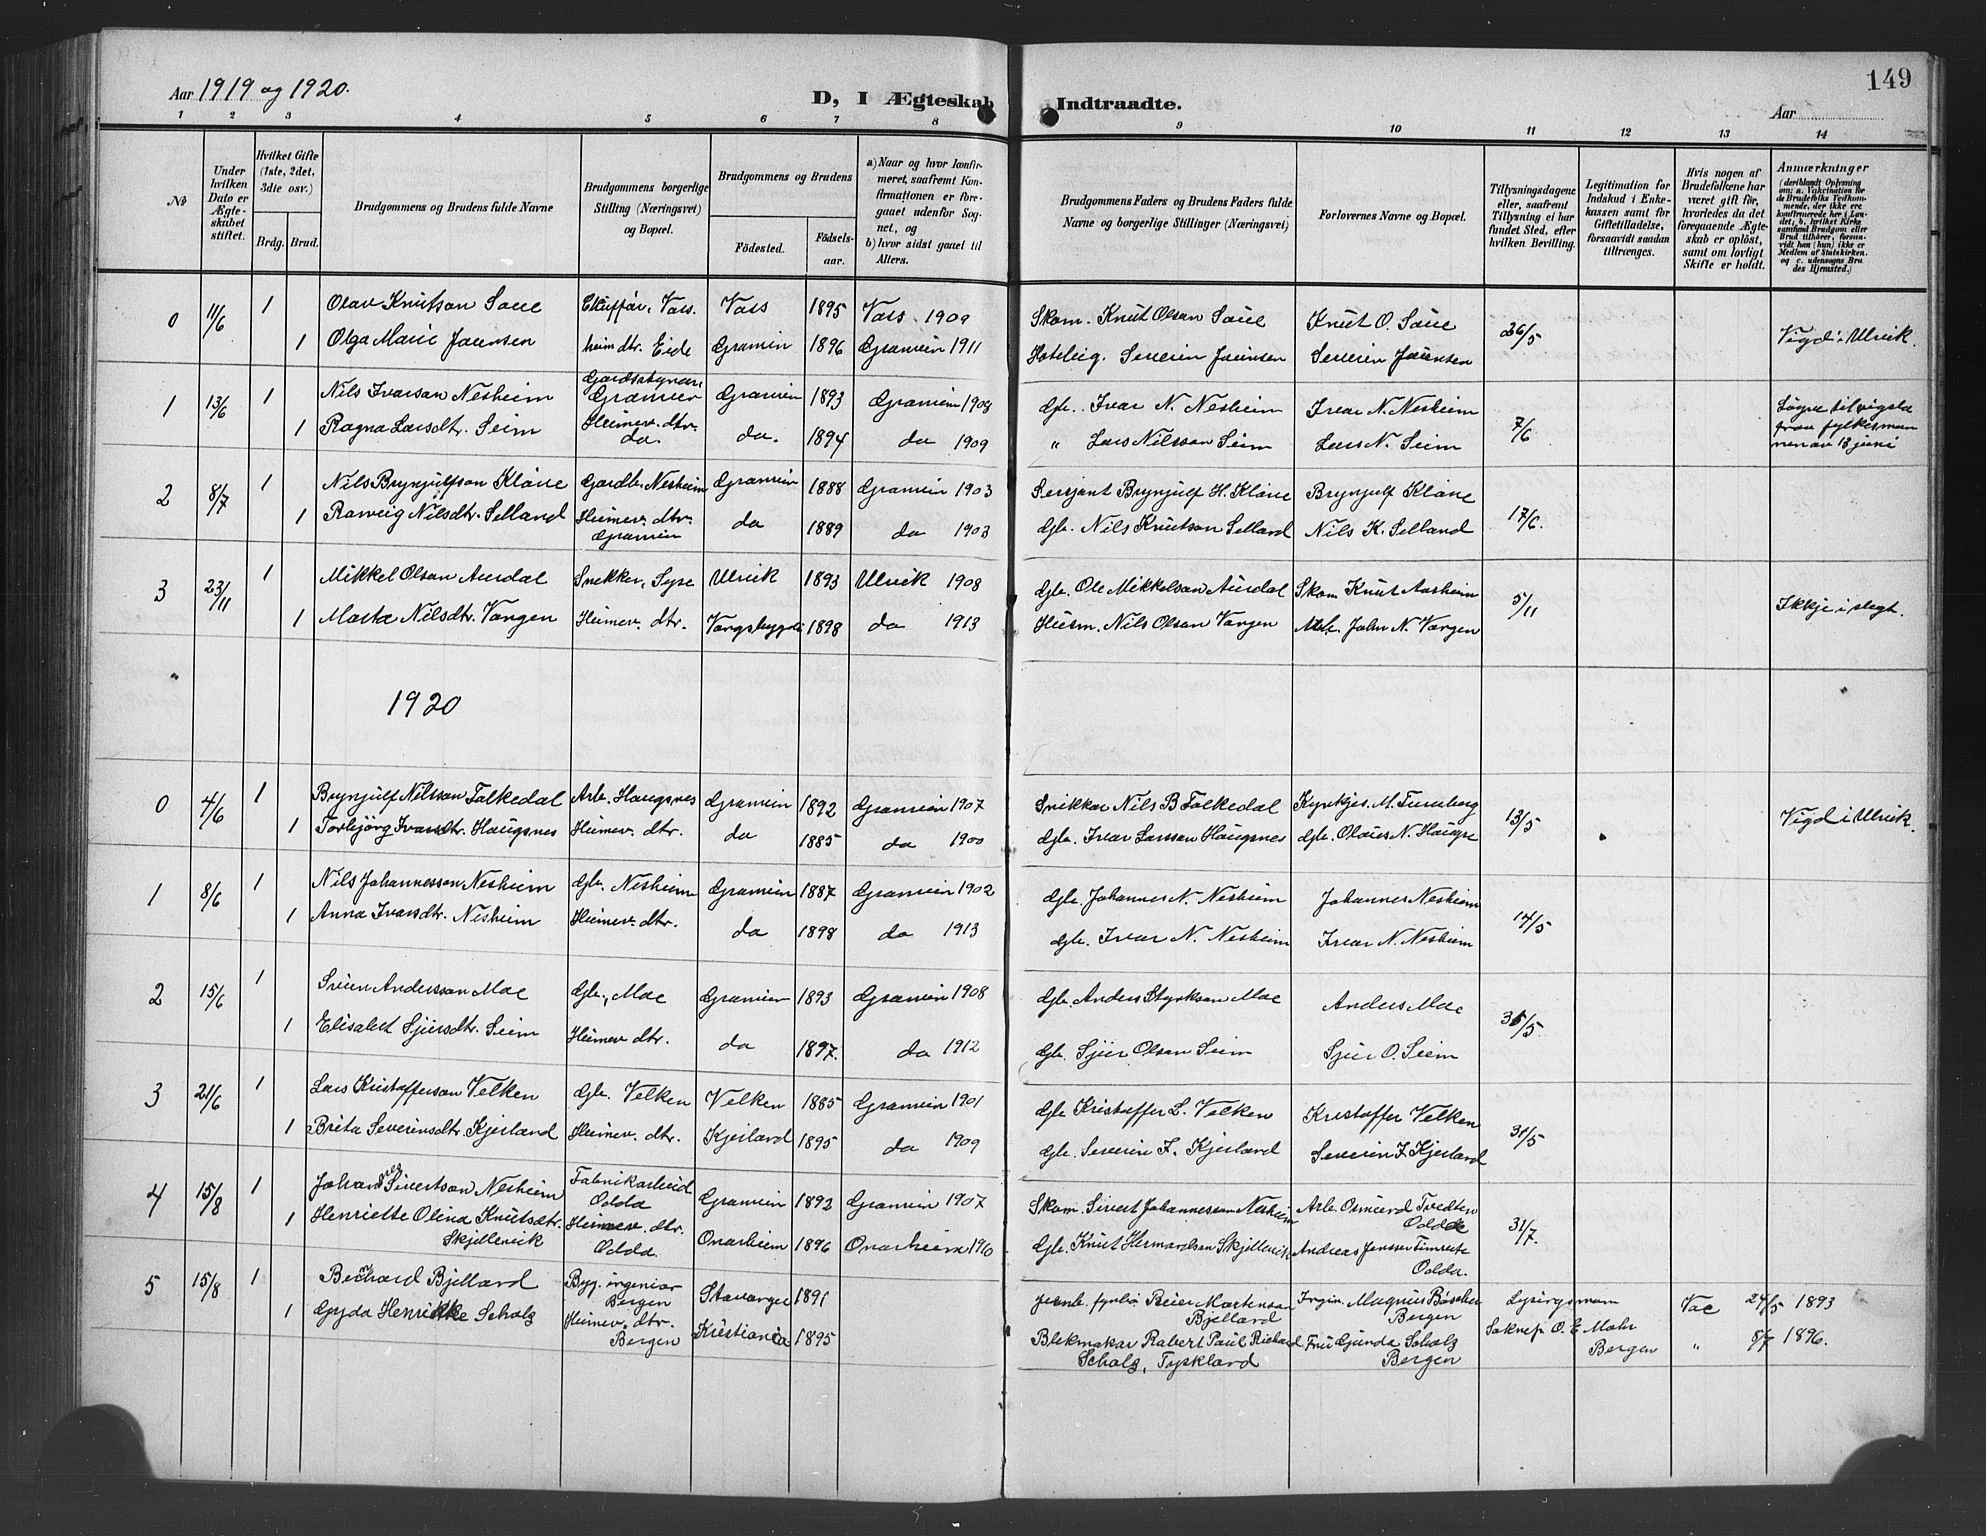 149
Aar 1919 og 1920.
D, I Ægteskab Indtraadte.
Aar
1 2 3 4 5 6 7 8 9 10 11 12 13 14
No
Under hvilken Dato er Ægteskabet stiftet.
Hvilket Gifte (1ste, 2det, 3die osv.)
Brdg. Brud.
Brudgommens og Brudens fulde Navne
Brudgommens borgerlige Stilling (Næringsvei) og Bopæl.
Brudgommens og Brudens
Fødested. Fødselsaar.
a) Naar og hvor konfirmeret, saafremt Konfirmationen er foregaaet udenfor Sognet, og
b) hvor sidst gaaet til Alters.
Brudgommens Faders og Brudens Faders fulde Navne og borgerlige Stillinger (Næringsvei)
Forlovernes Navne og Bopæl.
Tillysningsdagene eller, saafremt Tillysning ei har fundet Sted, efter hvilken Bevilling.
Legitimation for Indskud i Enkekassen samt for Giftetilladelse, forsaavidt saadan tiltrænges.
Hvis nogen af Brudefolkene har været gift før, hvorledes da det foregaaende Ægteskab er opløst, samt om lovligt Skifte er holdt.
Anmærkninger
(deriblandt Oplysning om: a. Vakcination for de Brudefolks Vedkommende, der ikke ere konfirmerede her i Landet; b. hvilket Kirkesamfund Brudgom eller Brud tilhører, forsaavidt han (hun) ikke er Medlem af Statskirken, og c. udensogns Brudes Hjemsted.)
0 11/6 1 Olav Knutson Saue Vass. Vass 1895 Vass 1909 Skom. Knut Olson Saue Knut O. Saue 26/5 Vigd i Ulvik.
1 Olga Marie Jaunsen heim dtr. Eide Gramvin 1896 Gramvin 1911 Hoteleig. Severin Jaunsen Severin Jaunsen
1 13/6 1 Nils Ivarson Nesheim Gardsstyrar Gramvin Gramvin 1893 Gramvin 1908 Gbr. Ivar N. Nesheim Ivar N. Nesheim 7/6 Løyve til vigsla fraa fylkesmannen av 13 juni
1 Ragna Larsdtr. Seim Heimev. dtr. do. do. 1894 do 1909 " Lars Nilsson Seim Lars N. Seim
2 8/7 1 Nils Brynjulfson Kløve Gardb. Nesheim Gramvin 1888 Gramvin 1903 Sersjant Brynjulf H. Kløve Brynjulf Kløve 17/6.
1 Ranveig Nilsdtr. Selland Heimev. dtr. Gramvin do 1889 do 1903 Gbr. Nils Knutson Selland Nils K. Selland
3 23/11 1 Mikkel Olson Aurdal Snekker, Syse Ulvik 1893 Ulvik 1908 Gbr. Ole Mikkelson Aurdal Skom Knut Aasheim 5/11 Ikkje i slegt.
1 Marta Nilsdtr. Vangen Heimev. dtr. 1898 do 1913 Husm. Nils Olson Vangen John N. Vangen
1920
0 4/6 1 Brynjulf Nilsson Folkedal Arb. Haugsnes Gramvin 1892 Gramvin 1907 Snikkar Nils B Folkedal Kyrkjes. M. Furuberg 13/5 Vigd i Ulvik.
1 Torbjörg Ivarsdtr. Haugsnes Heimev. dtr. do 1885 do 1900 Gbr. Ivar Larsson Haugsnes Gbr. Olaus N. Haugse
1 8/6 1 Nils Johannesson Nesheim Gbr. Nesheim Gramvin 1887 Gramvin 1902 Gbr. Johannes N. Nesheim Johannes Nesheim 14/5
1 Anna Ivarsdtr. Nesheim Heimev. dtr. do 1898 do 1913 Gbr. Ivar N. Nesheim Ivar N. Nesheim
2 15/6 1 Svein Andersson Moe Gbr., Moe Gramvin 1893 Gramvin 1908 Gbr. Anders Styrkson Moe Anders Moe 31/5
1 Elisabet Sjursdtr. Seim Heimev dtr. do 1897. do 1912 Gbr. Sjur Olson Seim Sjur O. Seim
3 21/6 1 Lars Kristofferson Velken Gbr. Velken Velken 1885 Gramvin 1901 Gbr Kristoffer L. Velken Kristoffer Velken 31/5
1 Brita Severinsdtr. Kjerland Heimev. dtr. Kjerland 1895 do 1909 Gbr. Severin J. Kjerland Severin J Kjerland
4 15/8 1 Johannes Sivertson Nesheim Fabrikarbeid Odda Gramvin 1892 Gramvin 1907 Skom. Sivert Johannesson Nesheim Arb. Osmund Tvedten Odda 31/7.
1 Henriette Olina Knutsdtr. Skjellevik Heimev. dtr. Odda. Onarheim 1896 Onarheim 1910 Gbr. Knut Hermundson Skjellevik Andreas Jensen Odda.
5 15/8 1 Bernhard Bjelland Byg. ingeniør Bergen Stavanger 1891 Peder Mortenson Bjelland Ingin. Magnus Bøschen Bergen Lysingsmann Vac 24/5 1893
1 Gyda Henrikke Scholz Heimev. dtr. Bergen Kristiania 1895 Blekmakar Robert Paul Richard Scholz, Tyskland Fru Gunda Scholz Bergen Soknepr. O. E. Mohr Bergen " 8/7 1896.